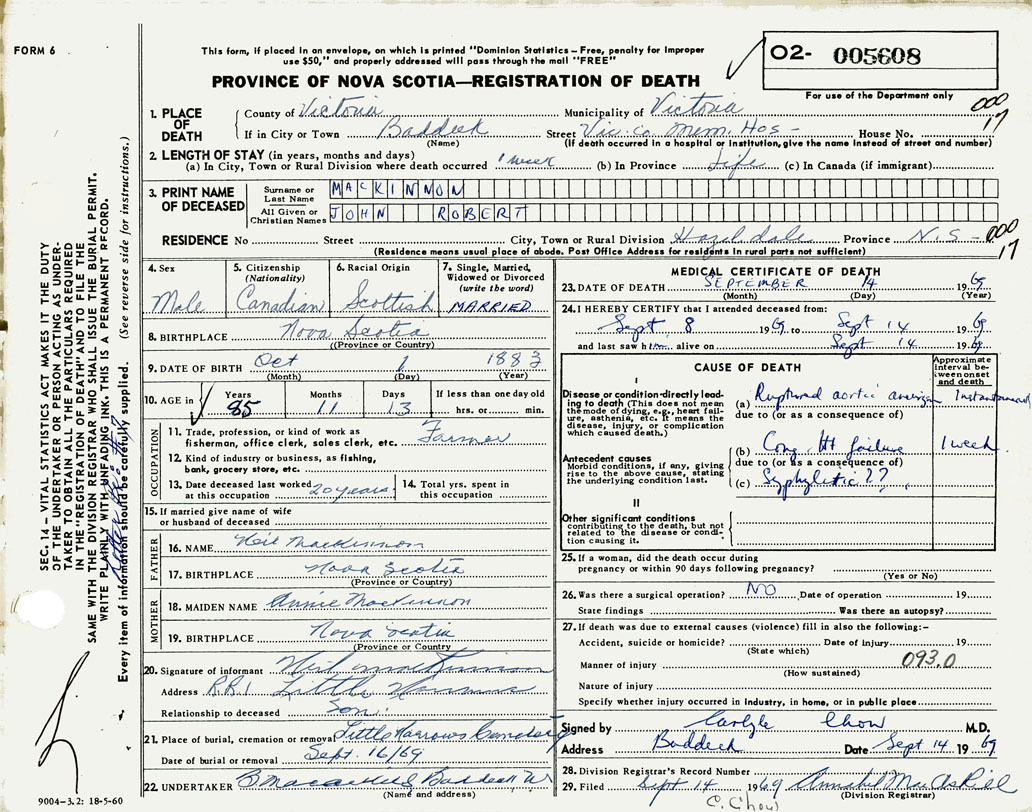 FORM 6
This form, if placed in an envelope, on which is printed "Dominion Statistics – Free, penalty for improper
use $50," and properly addressed will pass through the mail "FREE"
PROVINCE OF NOVA SCOTIA—REGISTRATION OF DEATH
O2- 005608
For use of the Department only
1. PLACE OF DEATH
County of Victoria Municipality of Victoria 000 17
If in City or Town Baddeck Street Vic. Co. Mem. Hos - House No.
(Name) (If death occurred in a hospital or institution, give the name instead of street and number)
2. LENGTH OF STAY (in years, months and days)
(a) In City, Town or Rural Division where death occurred 1 week (b) In Province Life (c) In Canada (if immigrant)
3. PRINT NAME OF DECEASED
Surname or Last Name MACKINNON
All Given or Christian Names JOHN ROBERT
RESIDENCE No Street City, Town or Rural Division Hazeldale Province N.S - 000 17
(Residence means usual place of abode. Post Office Address for residents in rural parts not sufficient)
4. Sex
Male
5. Citizenship (Nationality)
Canadian
6. Racial Origin
Scottish
7. Single, Married, Widowed or Divorced (write the word)
MARRIED
8. BIRTHPLACE Nova Scotia
(Province or Country)
9. DATE OF BIRTH Oct 1 1883
(Month) (Day) (Year)
10. AGE in Years Months Days If less than one day old
85 11 13 hrs. or min.
OCCUPATION
11. Trade, profession, or kind of work as
fisherman, office clerk, sales clerk, etc. Farmer
12. Kind of industry or business, as fishing,
bank, grocery store, etc.
13. Date deceased last worked at this occupation 20 years
14. Total yrs. spent in this occupation
15. If married give name of wife
or husband of deceased
FATHER
16. NAME Neil MacKinnon
17. BIRTHPLACE Nova Scotia
(Province or Country)
MOTHER
18. MAIDEN NAME Annie MacKinnon
19. BIRTHPLACE Nova Scotia
(Province or Country
20. Signature of informant Neil MacKinnon
Address R.R.1 Little Narrows
Relationship to deceased Son.
21. Place of burial, cremation or removal Little Narrows Cemetery
Date of burial or removal Sept. 16/69
22. UNDERTAKER Baddeck
(Name and address)
MEDICAL CERTIFICATE OF DEATH
23. DATE OF DEATH SEPTEMBER 14 1969
(Month) (Day) (Year)
24. I HEREBY CERTIFY that I attended deceased from:
Sept 8 1969 to Sept 14 1969
and last saw him alive on Sept 14 1969
CAUSE OF DEATH
Approximate interval between onset and death
I
Disease or condition directly leading to death (This does not mean the mode of dying, e.g., heart failure, asthenia, etc. It means the disease, injury, or complication which caused death.)
(a) Ruptured aortic
due to (or as a consequence of)
Antecedent causes
Morbid conditions, if any, giving rise to the above cause, stating the underlying condition last.
(b) Cong. Ht failure 1 week
due to (or as a consequence of)
(c) Syphyletic??
II
Other significant conditions
contributing to the death, but not related to the disease or condition causing it.
25. If a woman, did the death occur during
pregnancy or within 90 days following pregnancy?
(Yes or No)
26. Was there a surgical operation? NO Date of operation 19
State findings Was there an autopsy?
27. If death was due to external causes (violence) fill in also the following:–
Accident, suicide or homicide? Date of injury 19
(State which)
Manner of injury 093.0
(How sustained)
Nature of injury
Specify whether injury occurred in industry, in home, or in public place
Signed by Carlyle Chow M.D.
Address Baddeck Date Sept 14 1969
28. Division Registrar's Record Number
29. Filed Sept 14 1969
(Division Registrar)
C. Chow
SEC. 14 – VITAL STATISTICS ACT MAKES IT THE DUTY
OF THE UNDERTAKER OR PERSON ACTING AS UNDERTAKER
TO OBTAIN ALL THE PARTICULARS REQUIRED
IN THE "REGISTRATION OF DEATH" AND TO FILE THE
SAME WITH THE DIVISION REGISTRAR WHO SHALL ISSUE THE BURIAL PERMIT.
WRITE PLAINLY WITH UNFADING INK. THIS IS A PERMANENT RECORD.
Every item of information should be carefully supplied. (See reverse side for instructions.)
9004-3.2: 18-5-60